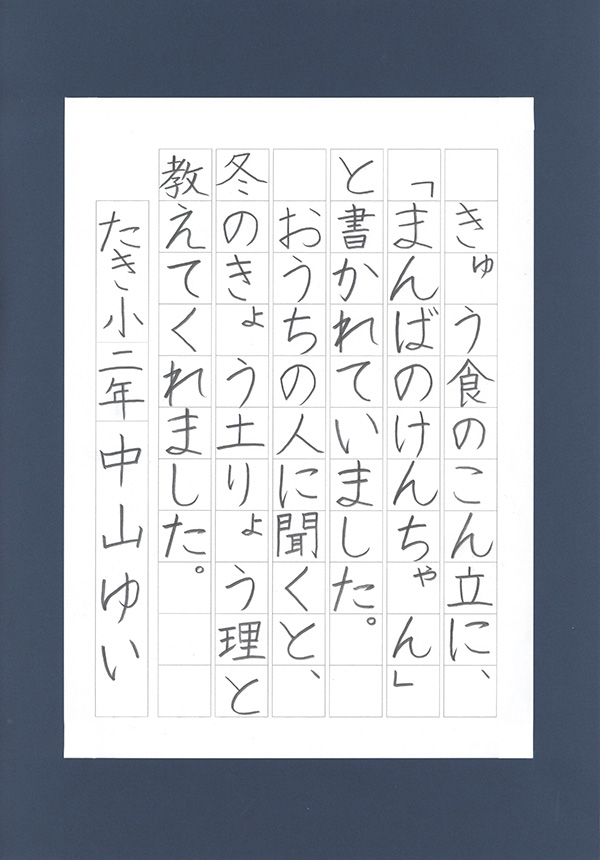 きゅう食のこん立に、
「まんばのけんちゃん」
と書かれていました。
おうちの人に聞くと、
冬のきょう土りょう理と
教えてくれました。
たき小二年 中山ゆい